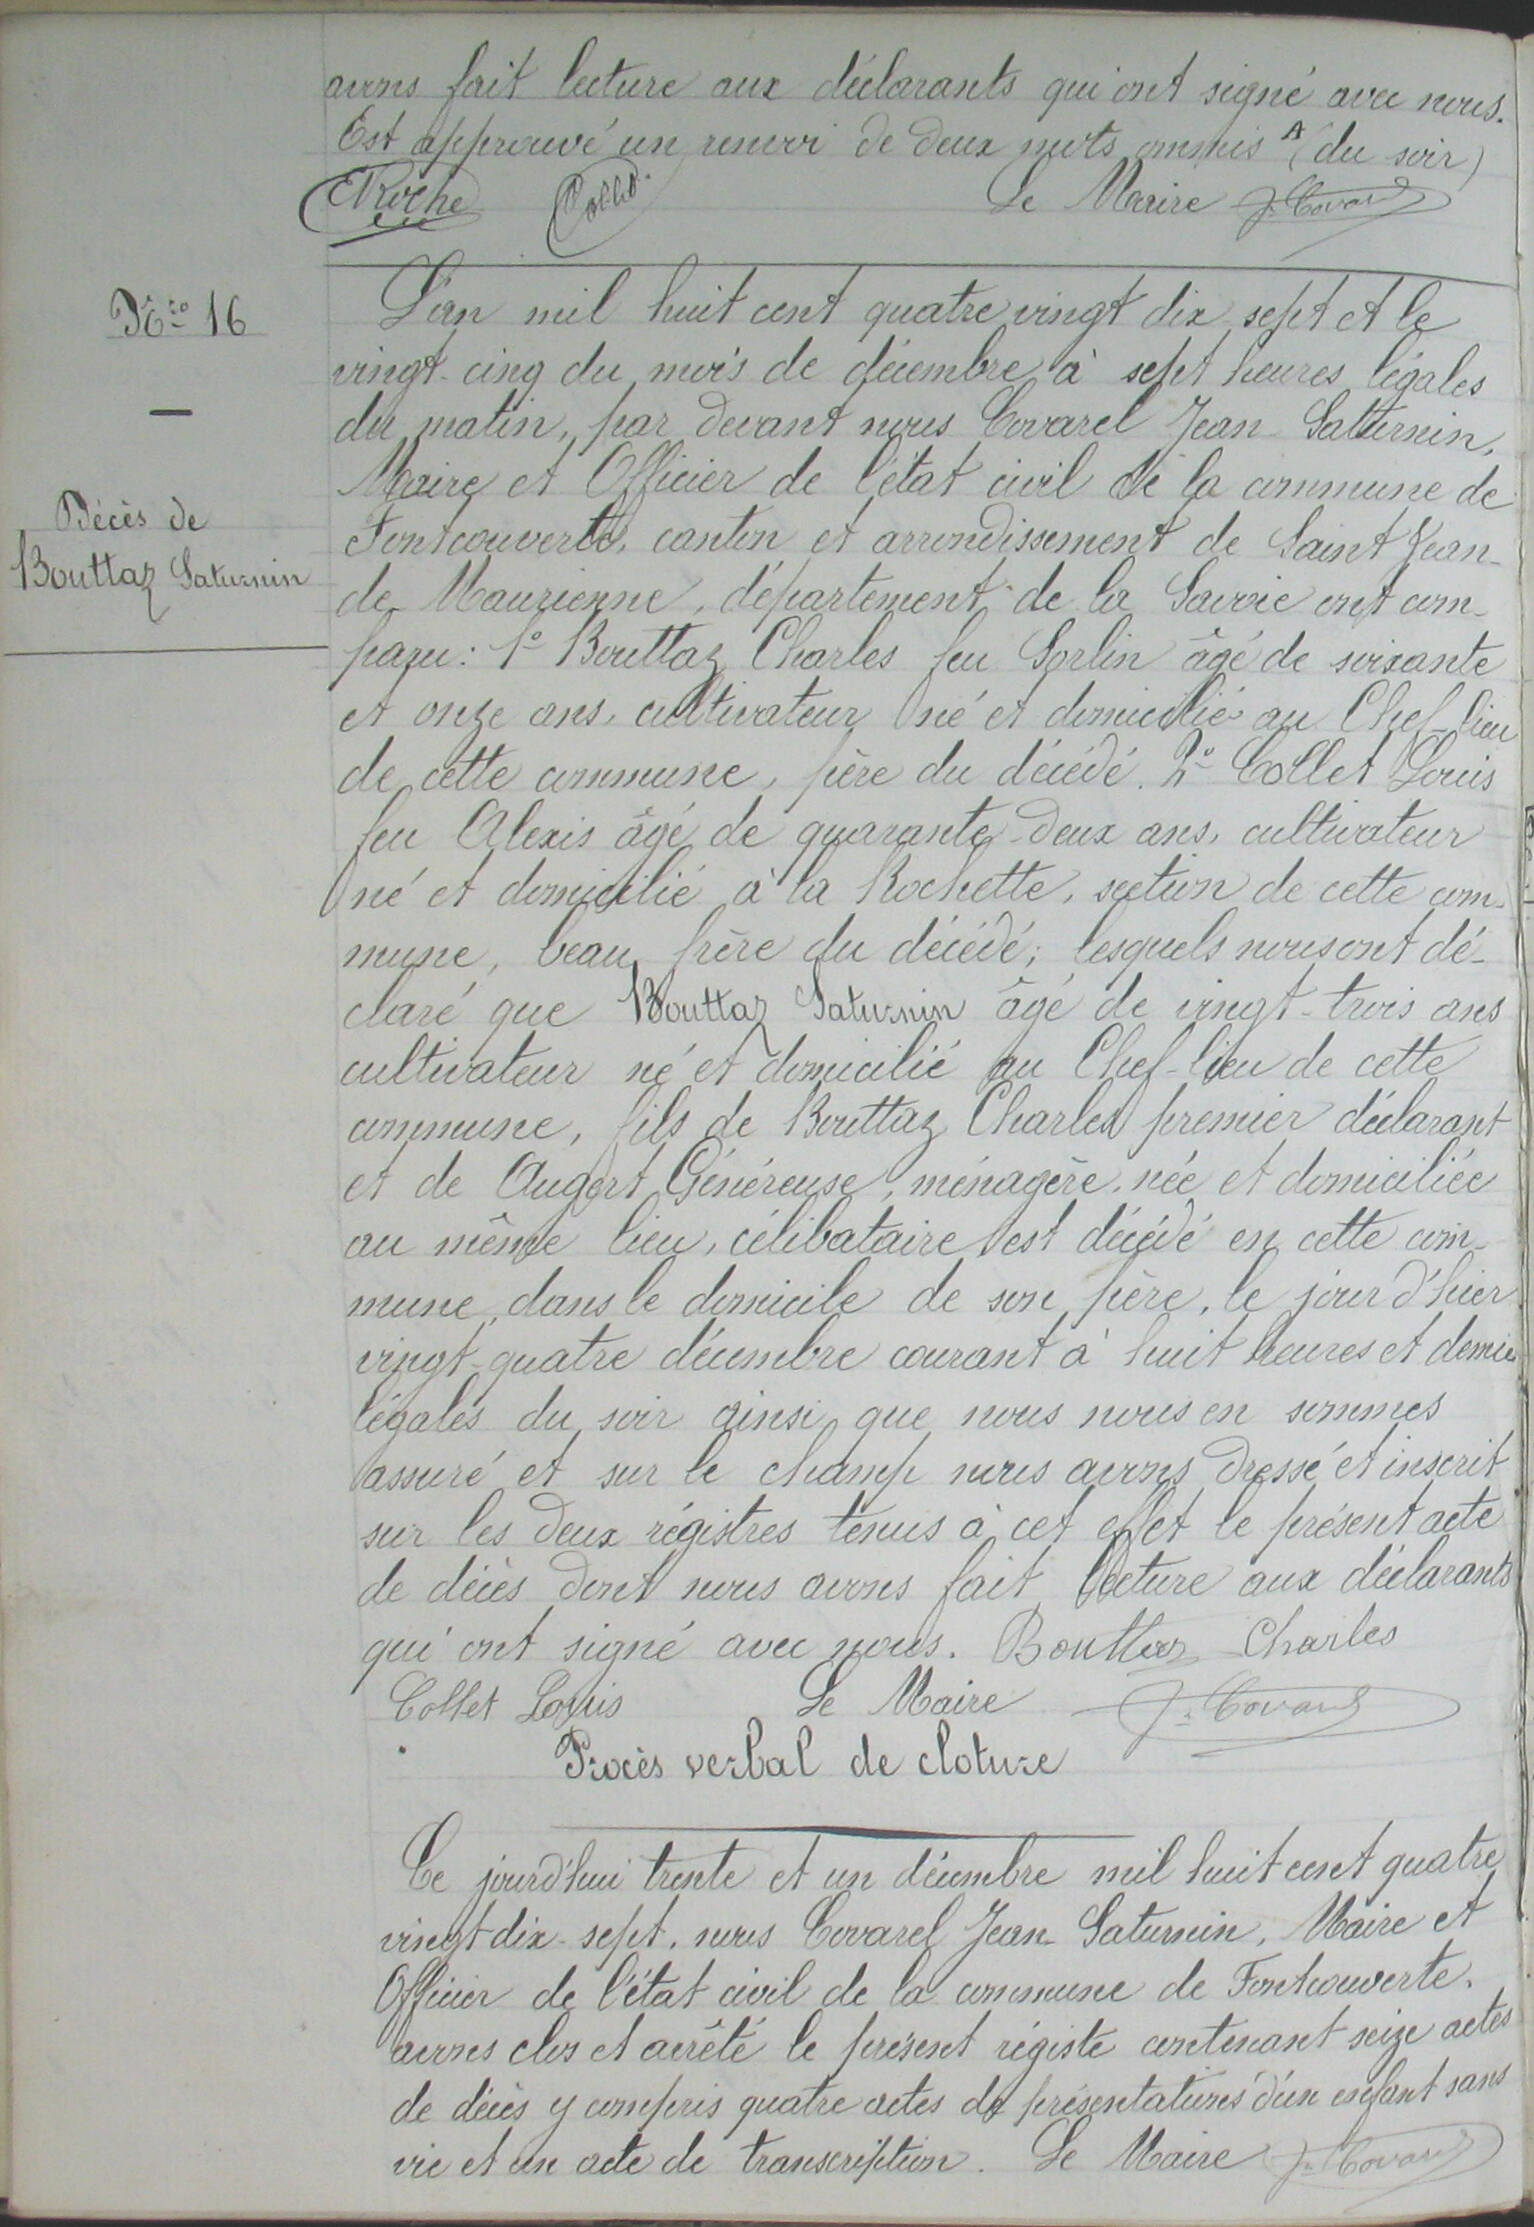 avons fait lecture aux déclarants qui ont signé avec nous.
Est approuvé un renvoi de deux mots ommis A (du soir)
Roche Collet Le Maire J. Covarel
Néro 16
Décès de
Bouttaz Saturnin
L'an mil huit cent quatre vingt dix sept et le
vingt-cinq du mois de décembre à sept heures légales
du matin, par devant nous Covarel Jean Satturnin,
Maire et Officier de l'état civil de la commune de
Fontcouverte, canton et arrondissement de Saint Jean-
de Maurienne, département de la Savoie ont com-
paru: 1º Bouttaz Charles feu Sorlin âgé de soixante
et onze ans, cultivateur né et domicilié au Chef-lieu
de cette commune, père du décédé. 2º Collet Louis
feu Alexis âgé de quarante-deux ans, cultivateur
né et domicilié à la Rochette, section de cette com-
mune, beau frère du décédé; lesquels nous ont dé-
claré que Bouttaz Saturnin âgé de vingt-trois ans
cultivateur né et domicilié au Chef-lieu de cette
commune, fils de Bouttaz Charles premier déclarant
et de Augert Généreuse, ménagère, née et domiciliée
au même lieu, célibataire est décédé en cette com-
mune, dans le domicile de son père, le jour d'hier
vingt-quatre décembre courant à huit heures et demie
légales du soir ainsi que nous nous en sommes
assuré et sur le champ nous avons dressé et inscrit
sur les deux régistres tenus à cet effet le présent acte
de décès dont nous avons fait lecture aux déclarants
qui ont signé avec nous. Bouttaz Charles
Collet Louis Le Maire J. Covarel
Procès verbal de cloture
Ce jourd'hui trente et un décembre mil huit cent quatre
vingt dix-sept, nous Covarel Jean-Saturnin, Maire et
Officier de l'état civil de la commune de Fontcouverte,
avons clos et arrêté le présent régistre contenant seize actes
de décès y compris quatre actes de présentations d'un enfant sans
vie et un acte de transcription. Le Maire J. Covarel